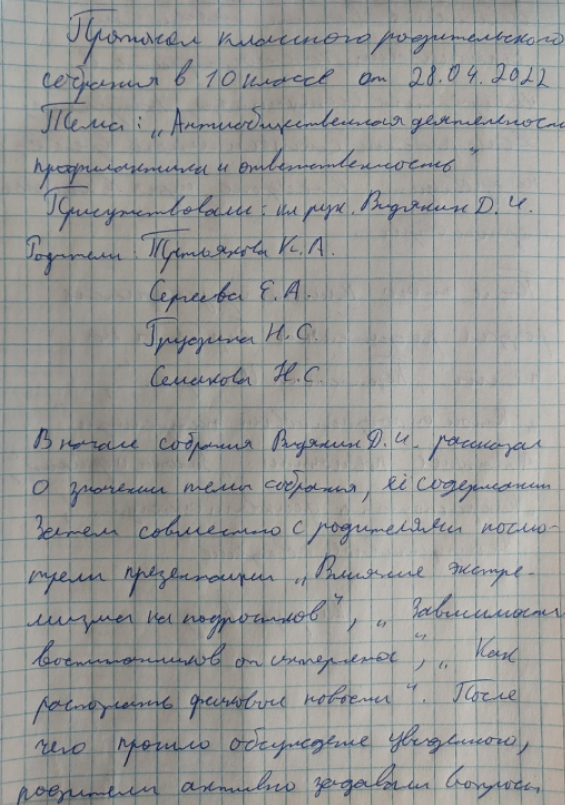 Протокол классного родительского
собрания в 10 классе от 28.04.2022
Тема: „Антиобщественная деятельность
профилактика и ответственность"
Присутствовали: кл рук. Видякин Д. И.
Родители: Третьякова К. А.
Сергеева Е. А.
Грудзина Н. С.
Семакова Н. С.
В начале собрания Видякин Д. И. рассказал
о значении темы собрания, её содержании
Затем совместно с родителями посмо-
трели презентации „Влияние экстре-
мизма на подростков", „Зависимость
воспитанников от интернета", „Как
распознать фейковые новости". После
чего прошло обсуждение увиденного,
родители активно задавали вопросы